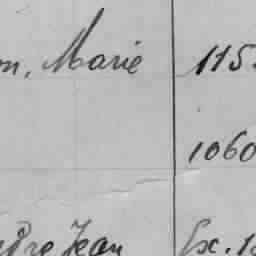 m, Marie 115
1060
dre Jean Ex. 1